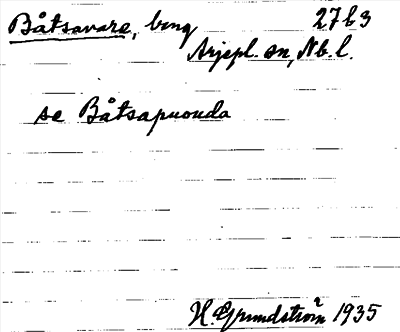 Båtsavare, berg 27b3
Arjepl. sn, Nb. l.
se Båtsapuouda
H. Grundström 1935